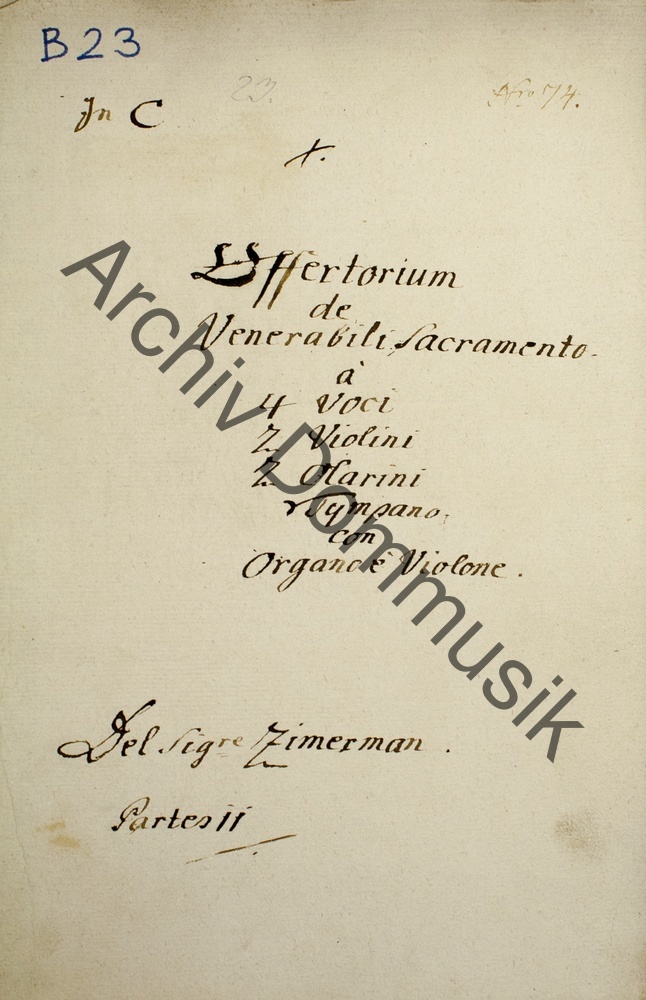 B23
23.
Nro 74.
In C
Offertorium
de
Venerabili Sacramento.
à
4 Voci
2 Violini
2 Clarini
Tympano.
con
Organo è Violone.
Del Sigre Zimerman.
Partes 11
Archiv Dommusik